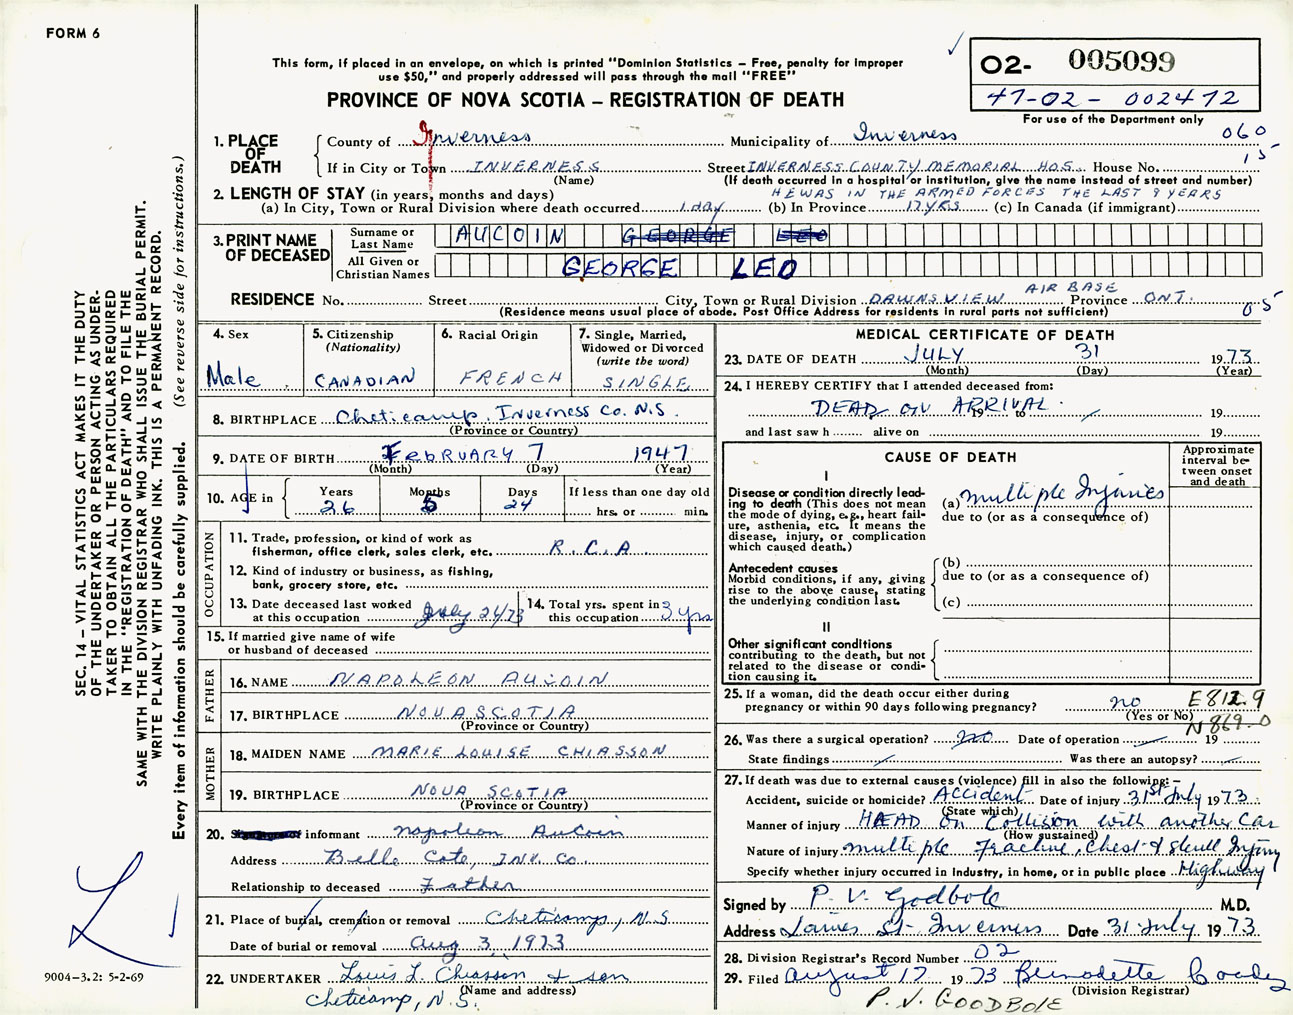 FORM 6
This form, if placed in an envelope, on which is printed "Dominion Statistics – Free, penalty for improper
use $50," and properly addressed will pass through the mail "FREE"
O2- 005099
47-02-002472
For use of the Department only
PROVINCE OF NOVA SCOTIA – REGISTRATION OF DEATH
1. PLACE OF DEATH
County of Inverness Municipality of Inverness 060
If in City or Town INVERNESS Street INVERNESS COUNTY MEMORIAL HOS. House No. 15
(Name) (If death occurred in a hospital or institution, give the name instead of street and number)
2. LENGTH OF STAY (in years, months and days) HE WAS IN THE ARMED FORCES THE LAST 9 YEARS
(a) In City, Town or Rural Division where death occurred 1 day (b) In Province 17 YRS (c) In Canada (if immigrant)
3. PRINT NAME OF DECEASED
Surname or Last Name AUCOIN GEORGE LEO
All Given or Christian Names GEORGE LEO
AIR BASE
RESIDENCE No. Street City, Town or Rural Division DAWNSVIEW Province ONT. 05
(Residence means usual place of abode. Post Office Address for residents in rural parts not sufficient)
4. Sex
Male
5. Citizenship
(Nationality)
CANADIAN
6. Racial Origin
FRENCH
7. Single, Married,
Widowed or Divorced
(write the word)
SINGLE
8. BIRTHPLACE Cheticamp, Inverness Co. N.S.
(Province or Country)
9. DATE OF BIRTH FEBRUARY 7 1947
(Month) (Day) (Year)
10. AGE in Years Months Days If less than one day old
26 5 24 hrs. or min.
OCCUPATION
11. Trade, profession, or kind of work as
fisherman, office clerk, sales clerk, etc. R.C.A.
12. Kind of industry or business, as fishing,
bank, grocery store, etc.
13. Date deceased last worked
at this occupation July 24/73
14. Total yrs. spent in
this occupation 3 yrs
15. If married give name of wife
or husband of deceased
FATHER
16. NAME NAPOLEON AUCOIN
17. BIRTHPLACE NOVA SCOTIA
(Province or Country)
MOTHER
18. MAIDEN NAME MARIE LOUISE CHIASSON
19. BIRTHPLACE NOVA SCOTIA
(Province or Country)
20. informant Napoleon AuCoin
Address Belle Cote, INV. Co.
Relationship to deceased Father
21. Place of burial, cremation or removal Cheticamp, N.S
Date of burial or removal Aug 3, 1973
22. UNDERTAKER Louis L. Chiasson & son
(Name and address)
Cheticamp, N.S.
MEDICAL CERTIFICATE OF DEATH
23. DATE OF DEATH JULY 31 1973
(Month) (Day) (Year)
24. I HEREBY CERTIFY that I attended deceased from:
DEAD ON ARRIVAL 19 to 19
and last saw h alive on 19
CAUSE OF DEATH
Approximate interval between onset and death
I
Disease or condition directly lead-
ing to death (This does not mean
the mode of dying, e.g., heart fail-
ure, asthenia, etc. It means the
disease, injury, or complication
which caused death.)
(a) multiple Injuries
due to (or as a consequence of)
Antecedent causes
Morbid conditions, if any, giving
rise to the above cause, stating
the underlying condition last.
(b)
due to (or as a consequence of)
(c)
II
Other significant conditions
contributing to the death, but not
related to the disease or condi-
tion causing it.
25. If a woman, did the death occur either during
pregnancy or within 90 days following pregnancy? no
(Yes or No)
E812.9
N869.0
26. Was there a surgical operation? no Date of operation 19
State findings Was there an autopsy?
27. If death was due to external causes (violence) fill in also the following: –
Accident, suicide or homicide? Accident Date of injury 31st July 1973
(State which)
Manner of injury HEAD on Collision with another Car
(How sustained)
Nature of injury multiple Fracture, Chest & Skull Injury
Specify whether injury occurred in industry, in home, or in public place Highway
Signed by P. V. Godbole M.D.
Address St. Inverness Date 31 July 1973
28. Division Registrar's Record Number 02
29. Filed August 17 1973 Bernadette
(Division Registrar)
P. V. GOODBOLE
SEC. 14 – VITAL STATISTICS ACT MAKES IT THE DUTY
OF THE UNDERTAKER OR PERSON ACTING AS UNDER-
TAKER TO OBTAIN ALL THE PARTICULARS REQUIRED
IN THE "REGISTRATION OF DEATH" AND TO FILE THE
SAME WITH THE DIVISION REGISTRAR WHO SHALL ISSUE THE BURIAL PERMIT.
WRITE PLAINLY WITH UNFADING INK. THIS IS A PERMANENT RECORD.
Every item of information should be carefully supplied. (See reverse side for instructions.)
9004-3.2: 5-2-69